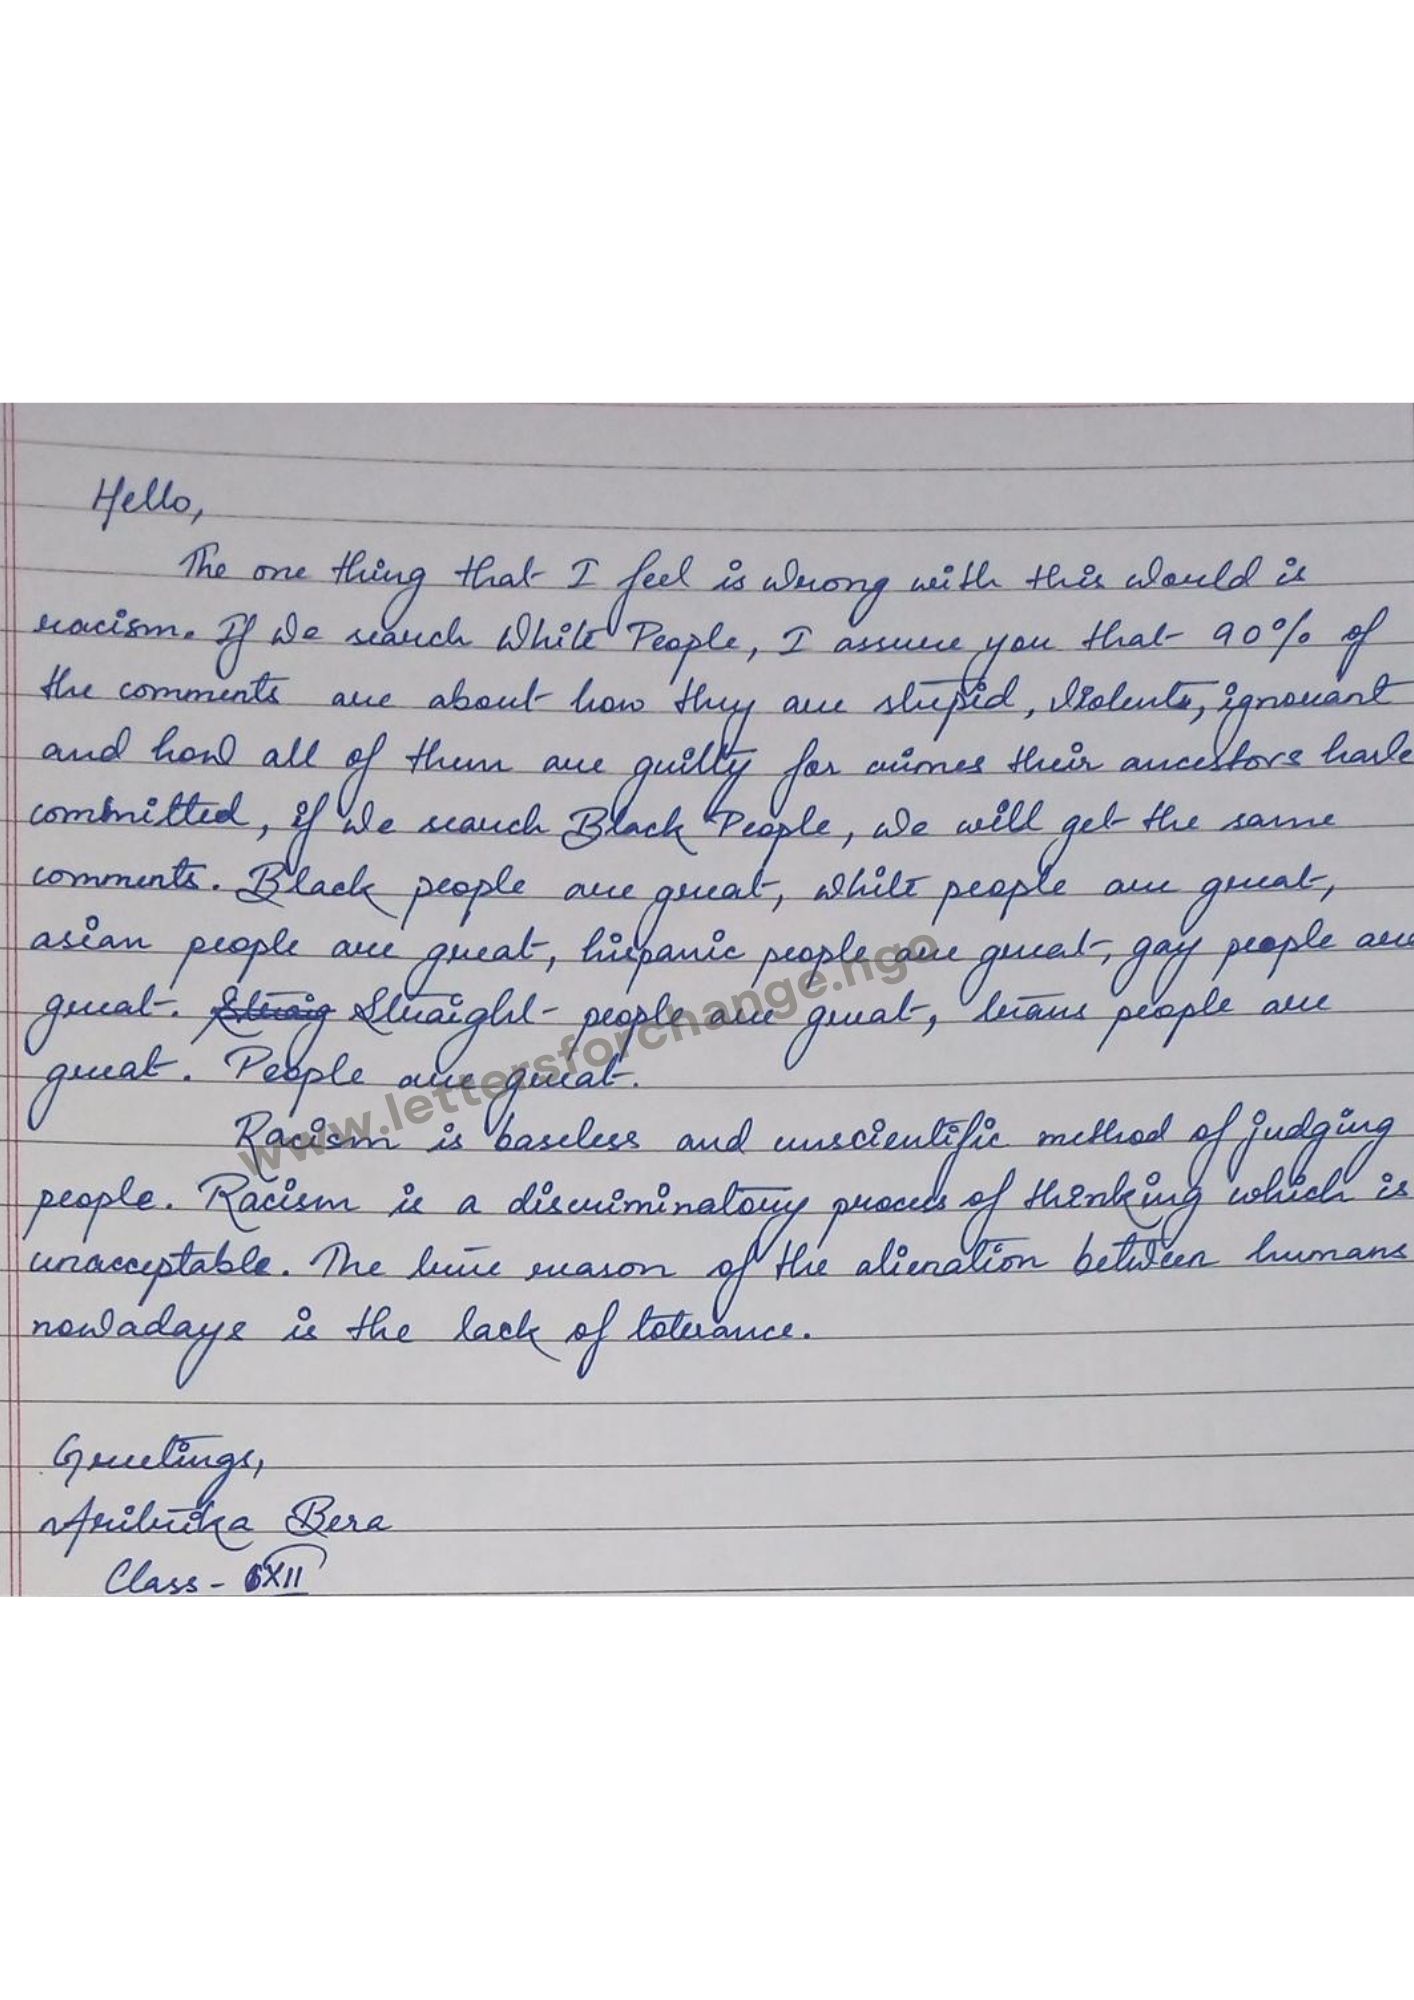 Hello,
The one thing that I feel is wrong with this world is
racism. If we search White People, I assure you that 90% of
the comments are about how they are stupid, violents, ignorant
and how all of them are guilty for crimes their ancestors have
committed, if we search Black People, we will get the same
comments. Black people are great, white people are great,
asian people are great, hispanic people are great, gay people are
great. Straig Straight people are great, trans people are
great. People are great.
Racism is baseless and unscientific method of judging
people. Racism is a discriminatory process of thinking which is
unacceptable. The true reason of the alienation between humans
nowadays is the lack of tolerance.
Greetings,
Bera
Class - XII
www.lettersforchange.ngo